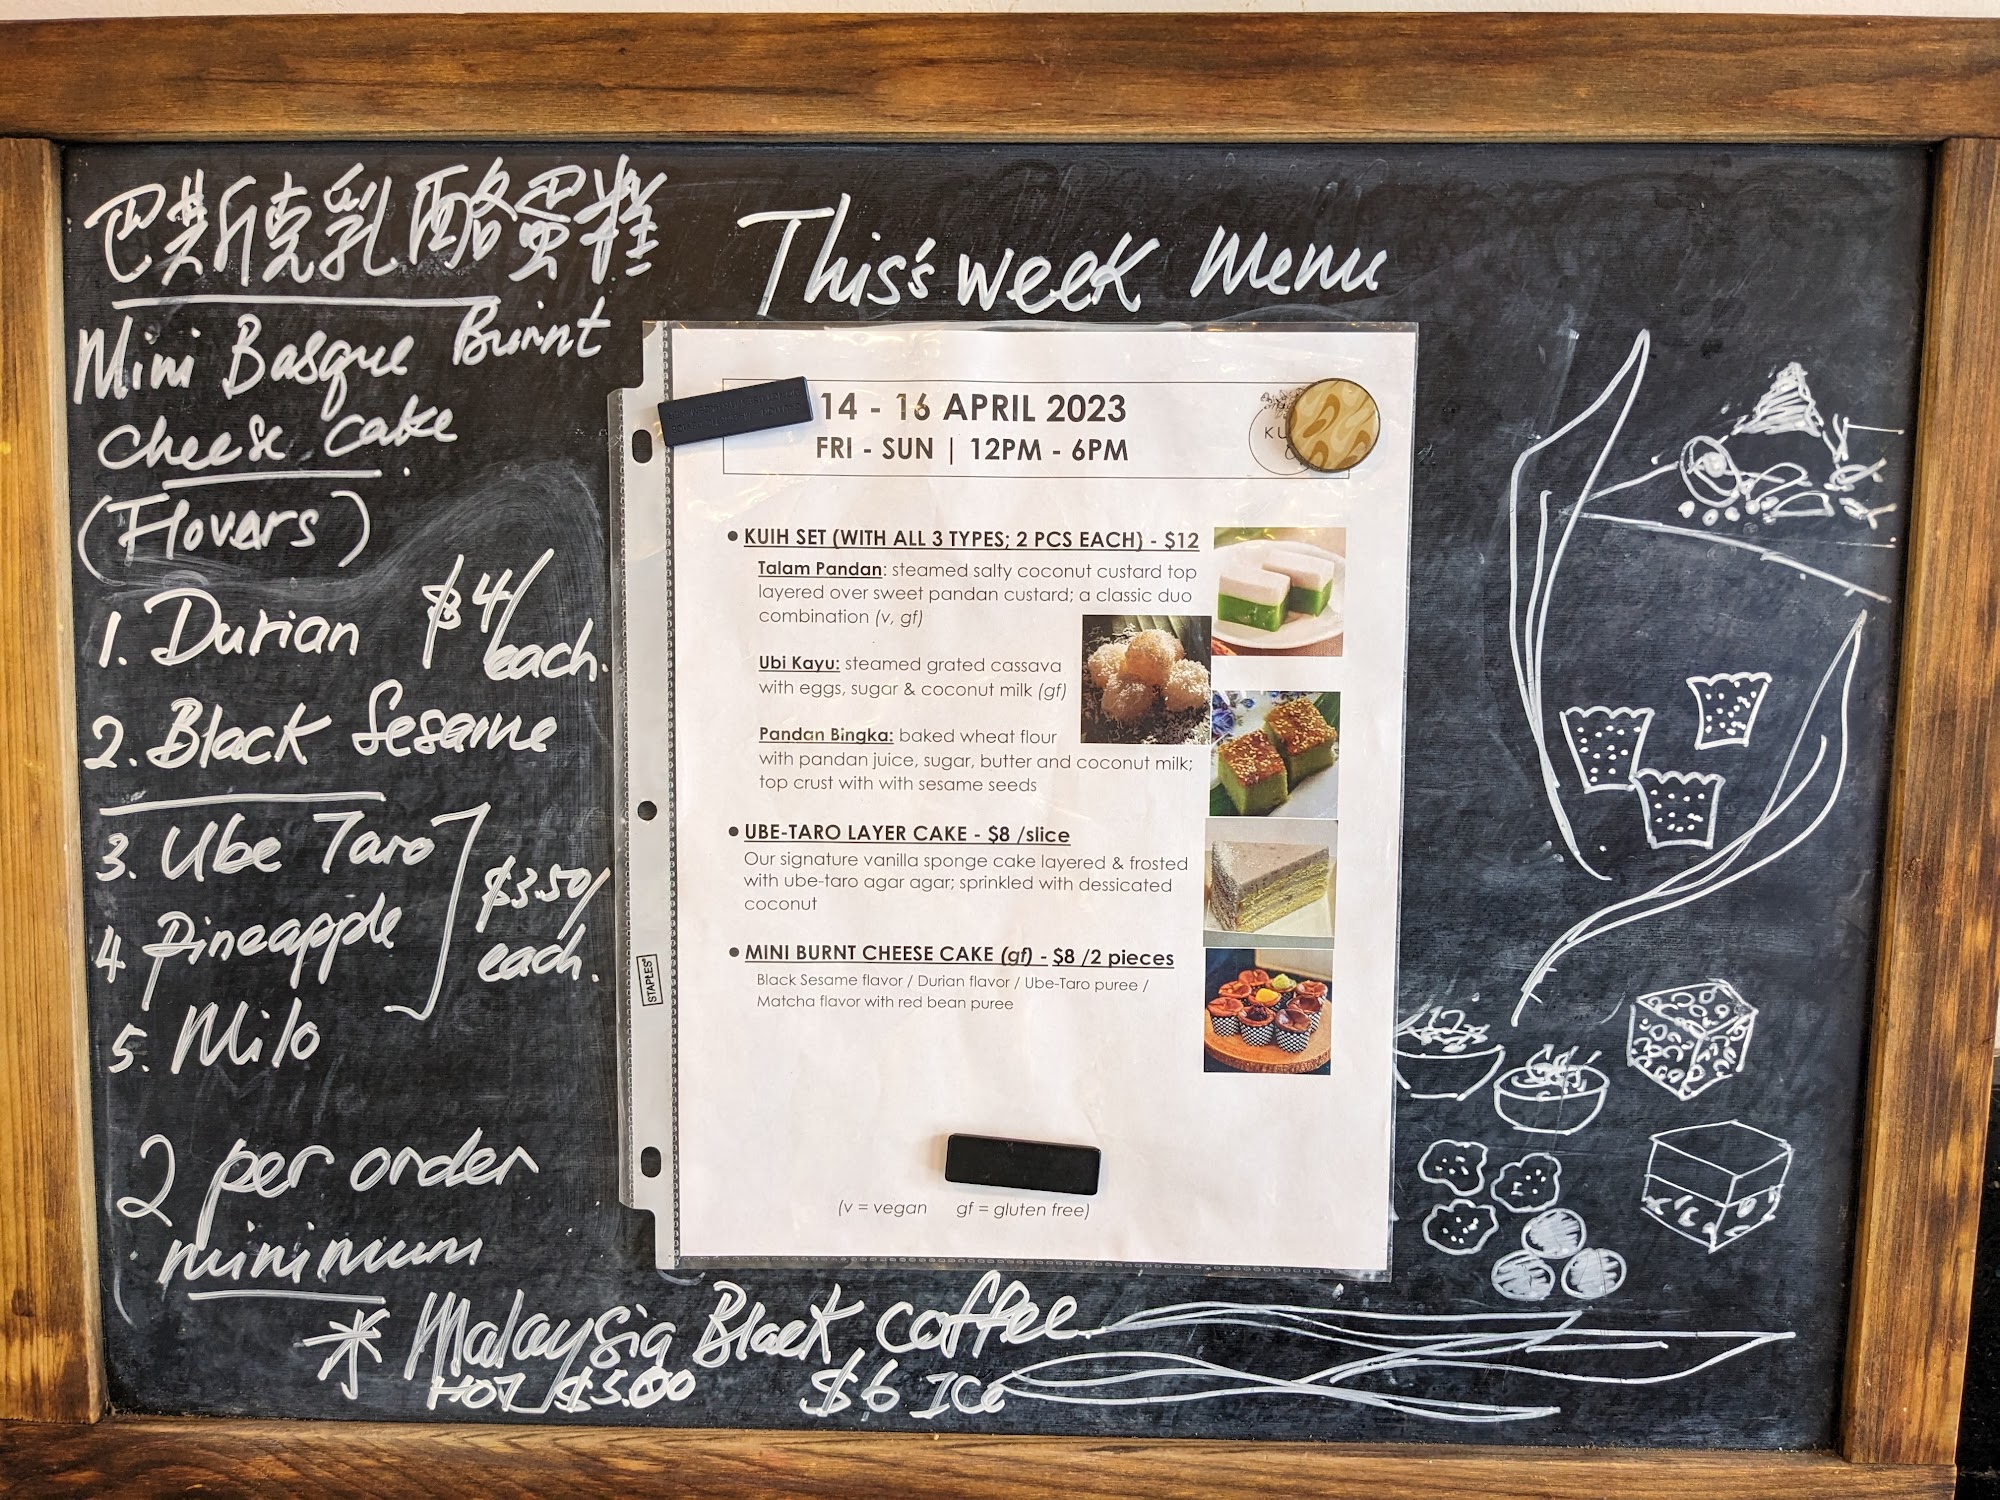 巴斯克乳酪蛋糕
Mini Basque Burnt
cheese cake
(Flovars)
1. Durian $4/each.
2. Black Sesame
3. Ube Taro
4 Pineapple
$3.50/each.
5. Milo
2 per order
minimum
This's week Menu
14 - 16 APRIL 2023
FRI - SUN | 12PM - 6PM
KU
• KUIH SET (WITH ALL 3 TYPES; 2 PCS EACH) - $12
Talam Pandan: steamed salty coconut custard top
layered over sweet pandan custard; a classic duo
combination (v, gf)
Ubi Kayu: steamed grated cassava
with eggs, sugar & coconut milk (gf)
Pandan Bingka: baked wheat flour
with pandan juice, sugar, butter and coconut milk;
top crust with with sesame seeds
• UBE-TARO LAYER CAKE - $8 /slice
Our signature vanilla sponge cake layered & frosted
with ube-taro agar agar; sprinkled with dessicated
coconut
• MINI BURNT CHEESE CAKE (gf) - $8 /2 pieces
Black Sesame flavor / Durian flavor / Ube-Taro puree /
Matcha flavor with red bean puree
(v = vegan gf = gluten free)
STAPLES
* Malaysia Black coffee
HOT $5.00 $6 ICe